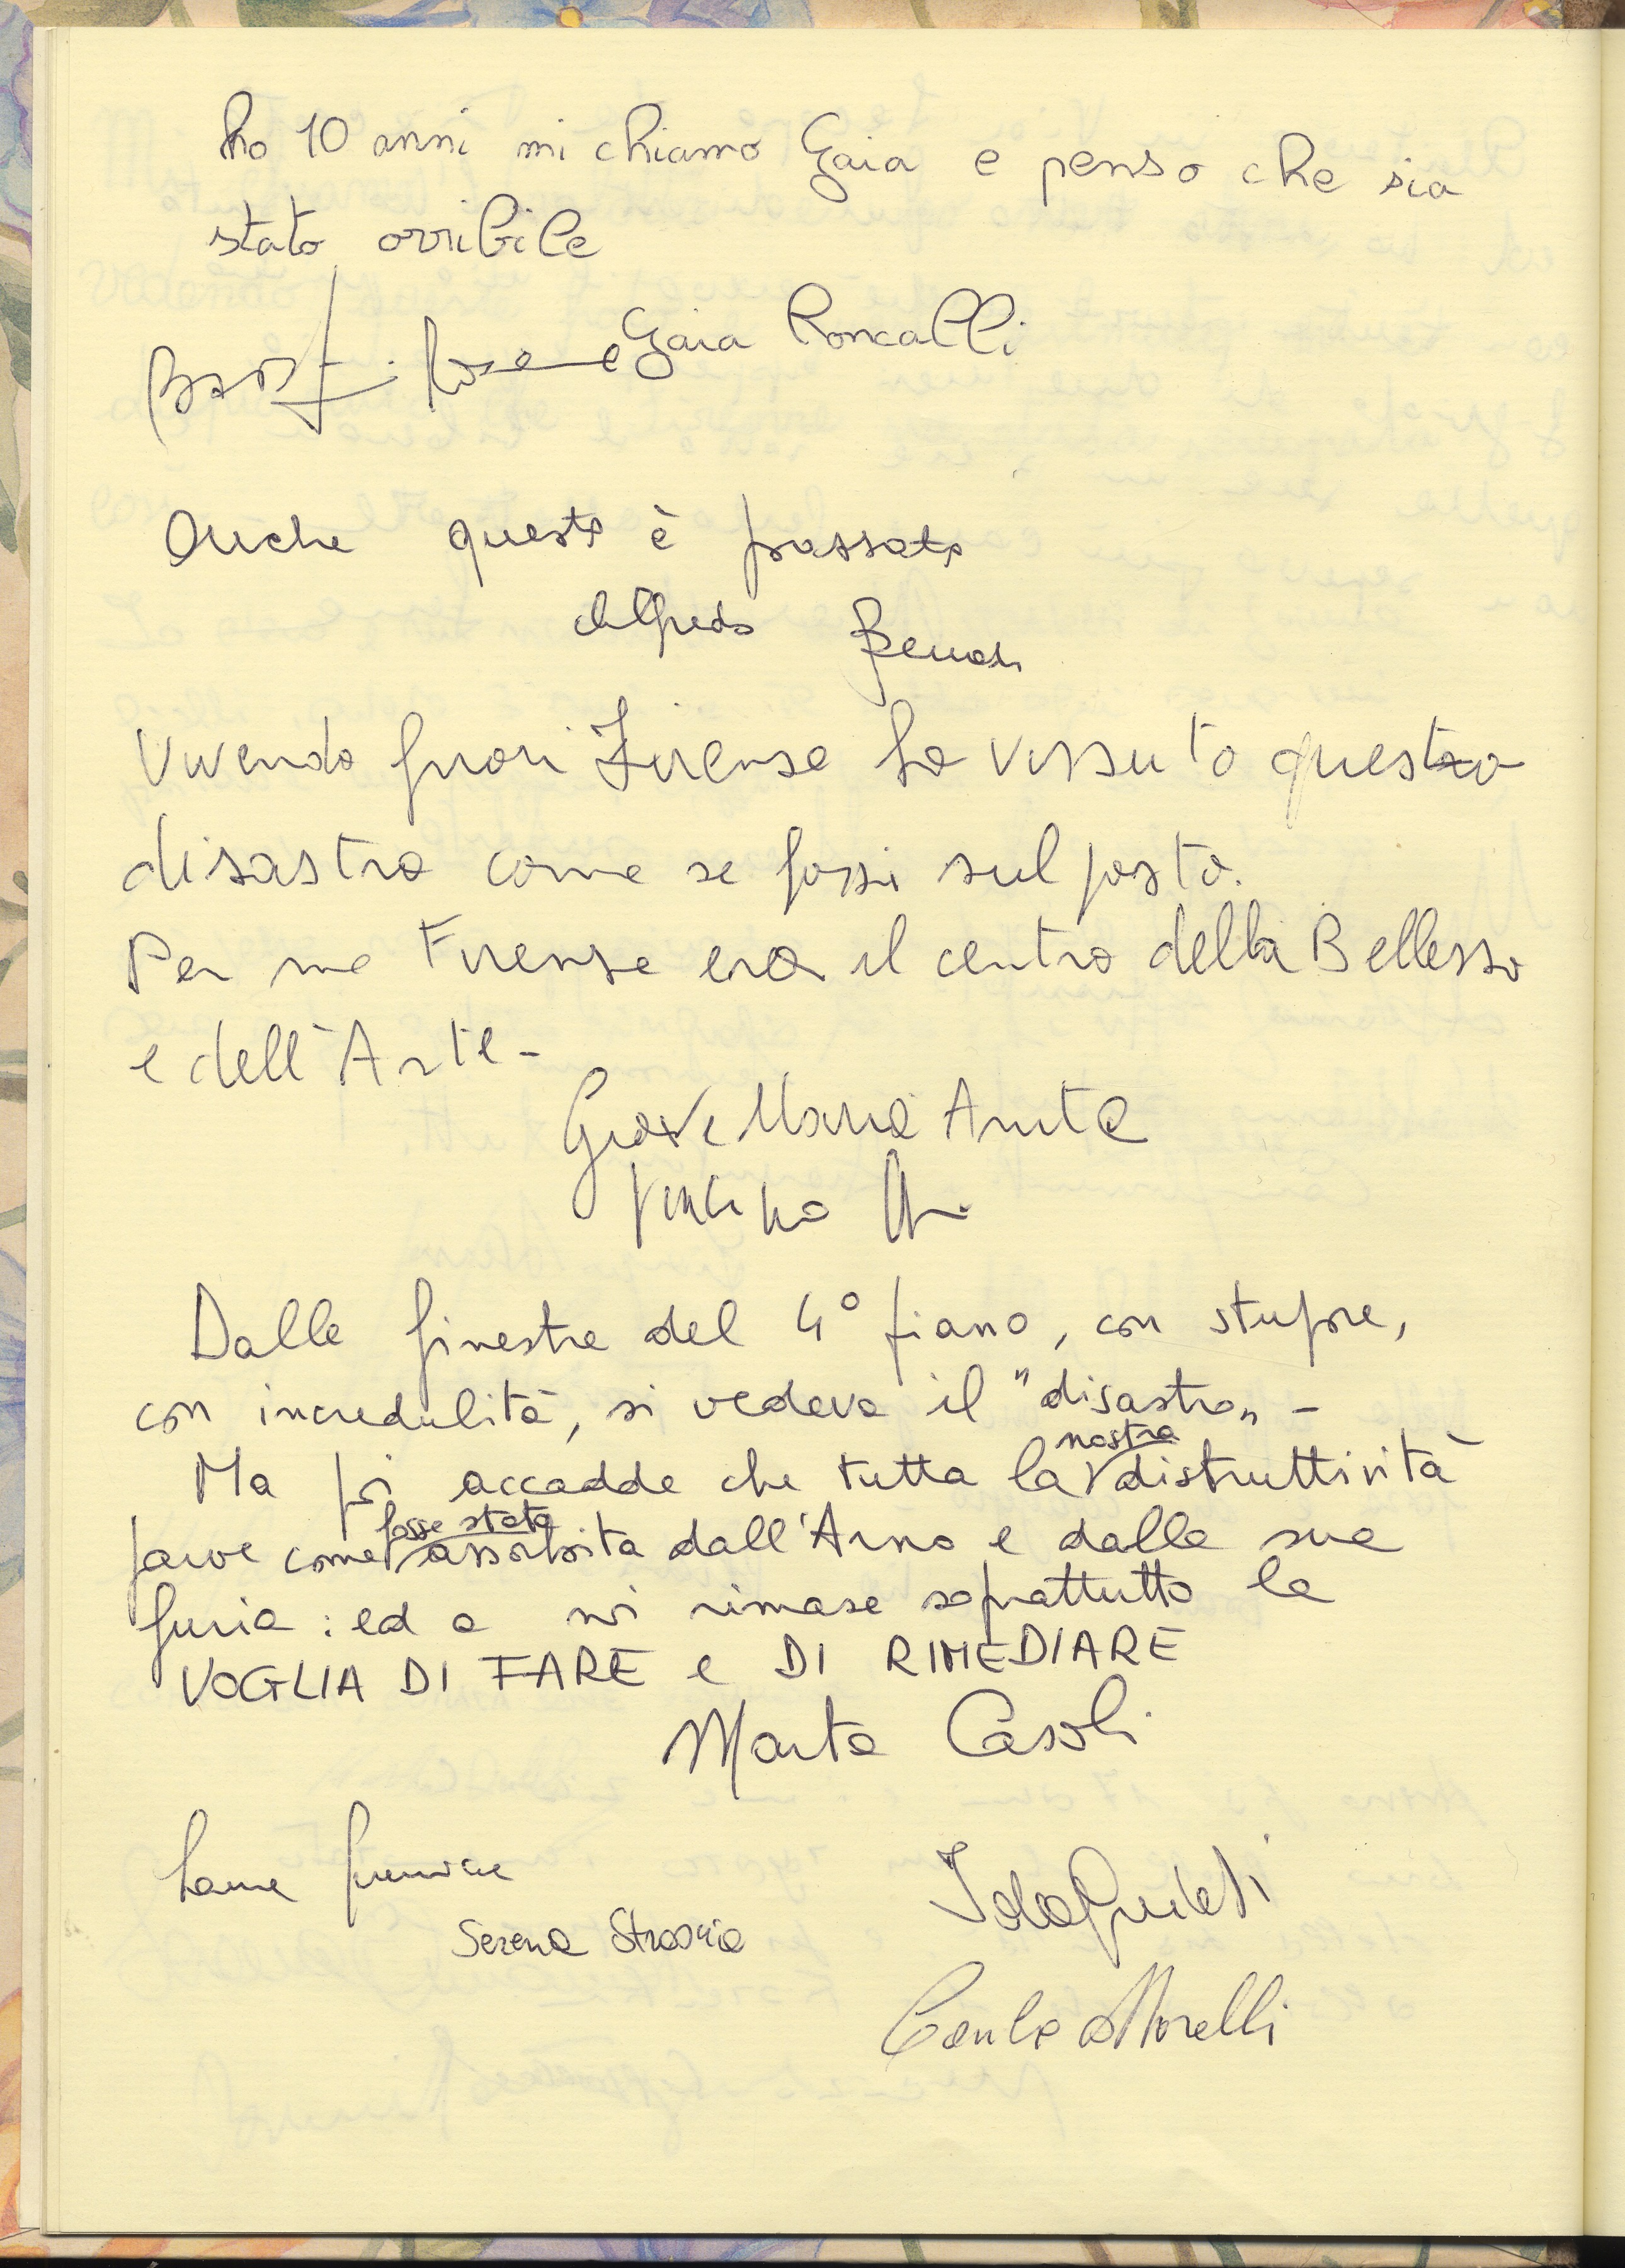 ho 10 anni mi chiamo Gaia e penso che sia
stato orribile
Gaia Roncalli
Anche questo è passato
Alfredo
Vivendo fuori Firenze ho vissuto questo
disastro come se fossi sul posto.
Per me Firenze era il centro della Bellezza
e dell'Arte -
Maria Anita
Dalle finestre del 4° piano, con stupore,
con incredulità, si vedeva il "disastro" -
Ma poi accadde che tutta la nostra distruttività
parve come fosse stata assorbita dall'Arno e dalla sua
furia: ed a noi rimase soprattutto la
VOGLIA DI FARE e DI RIMEDIARE
Marta Casoli
Serena
Morelli